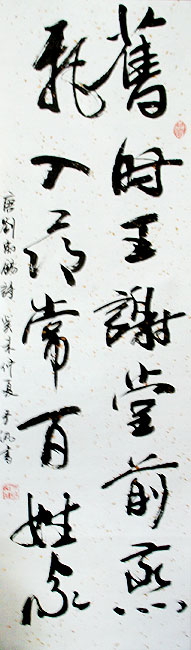 舊时王謝堂前燕
飛入尋常百姓家
唐劉禹錫詩 癸未仲夏 書